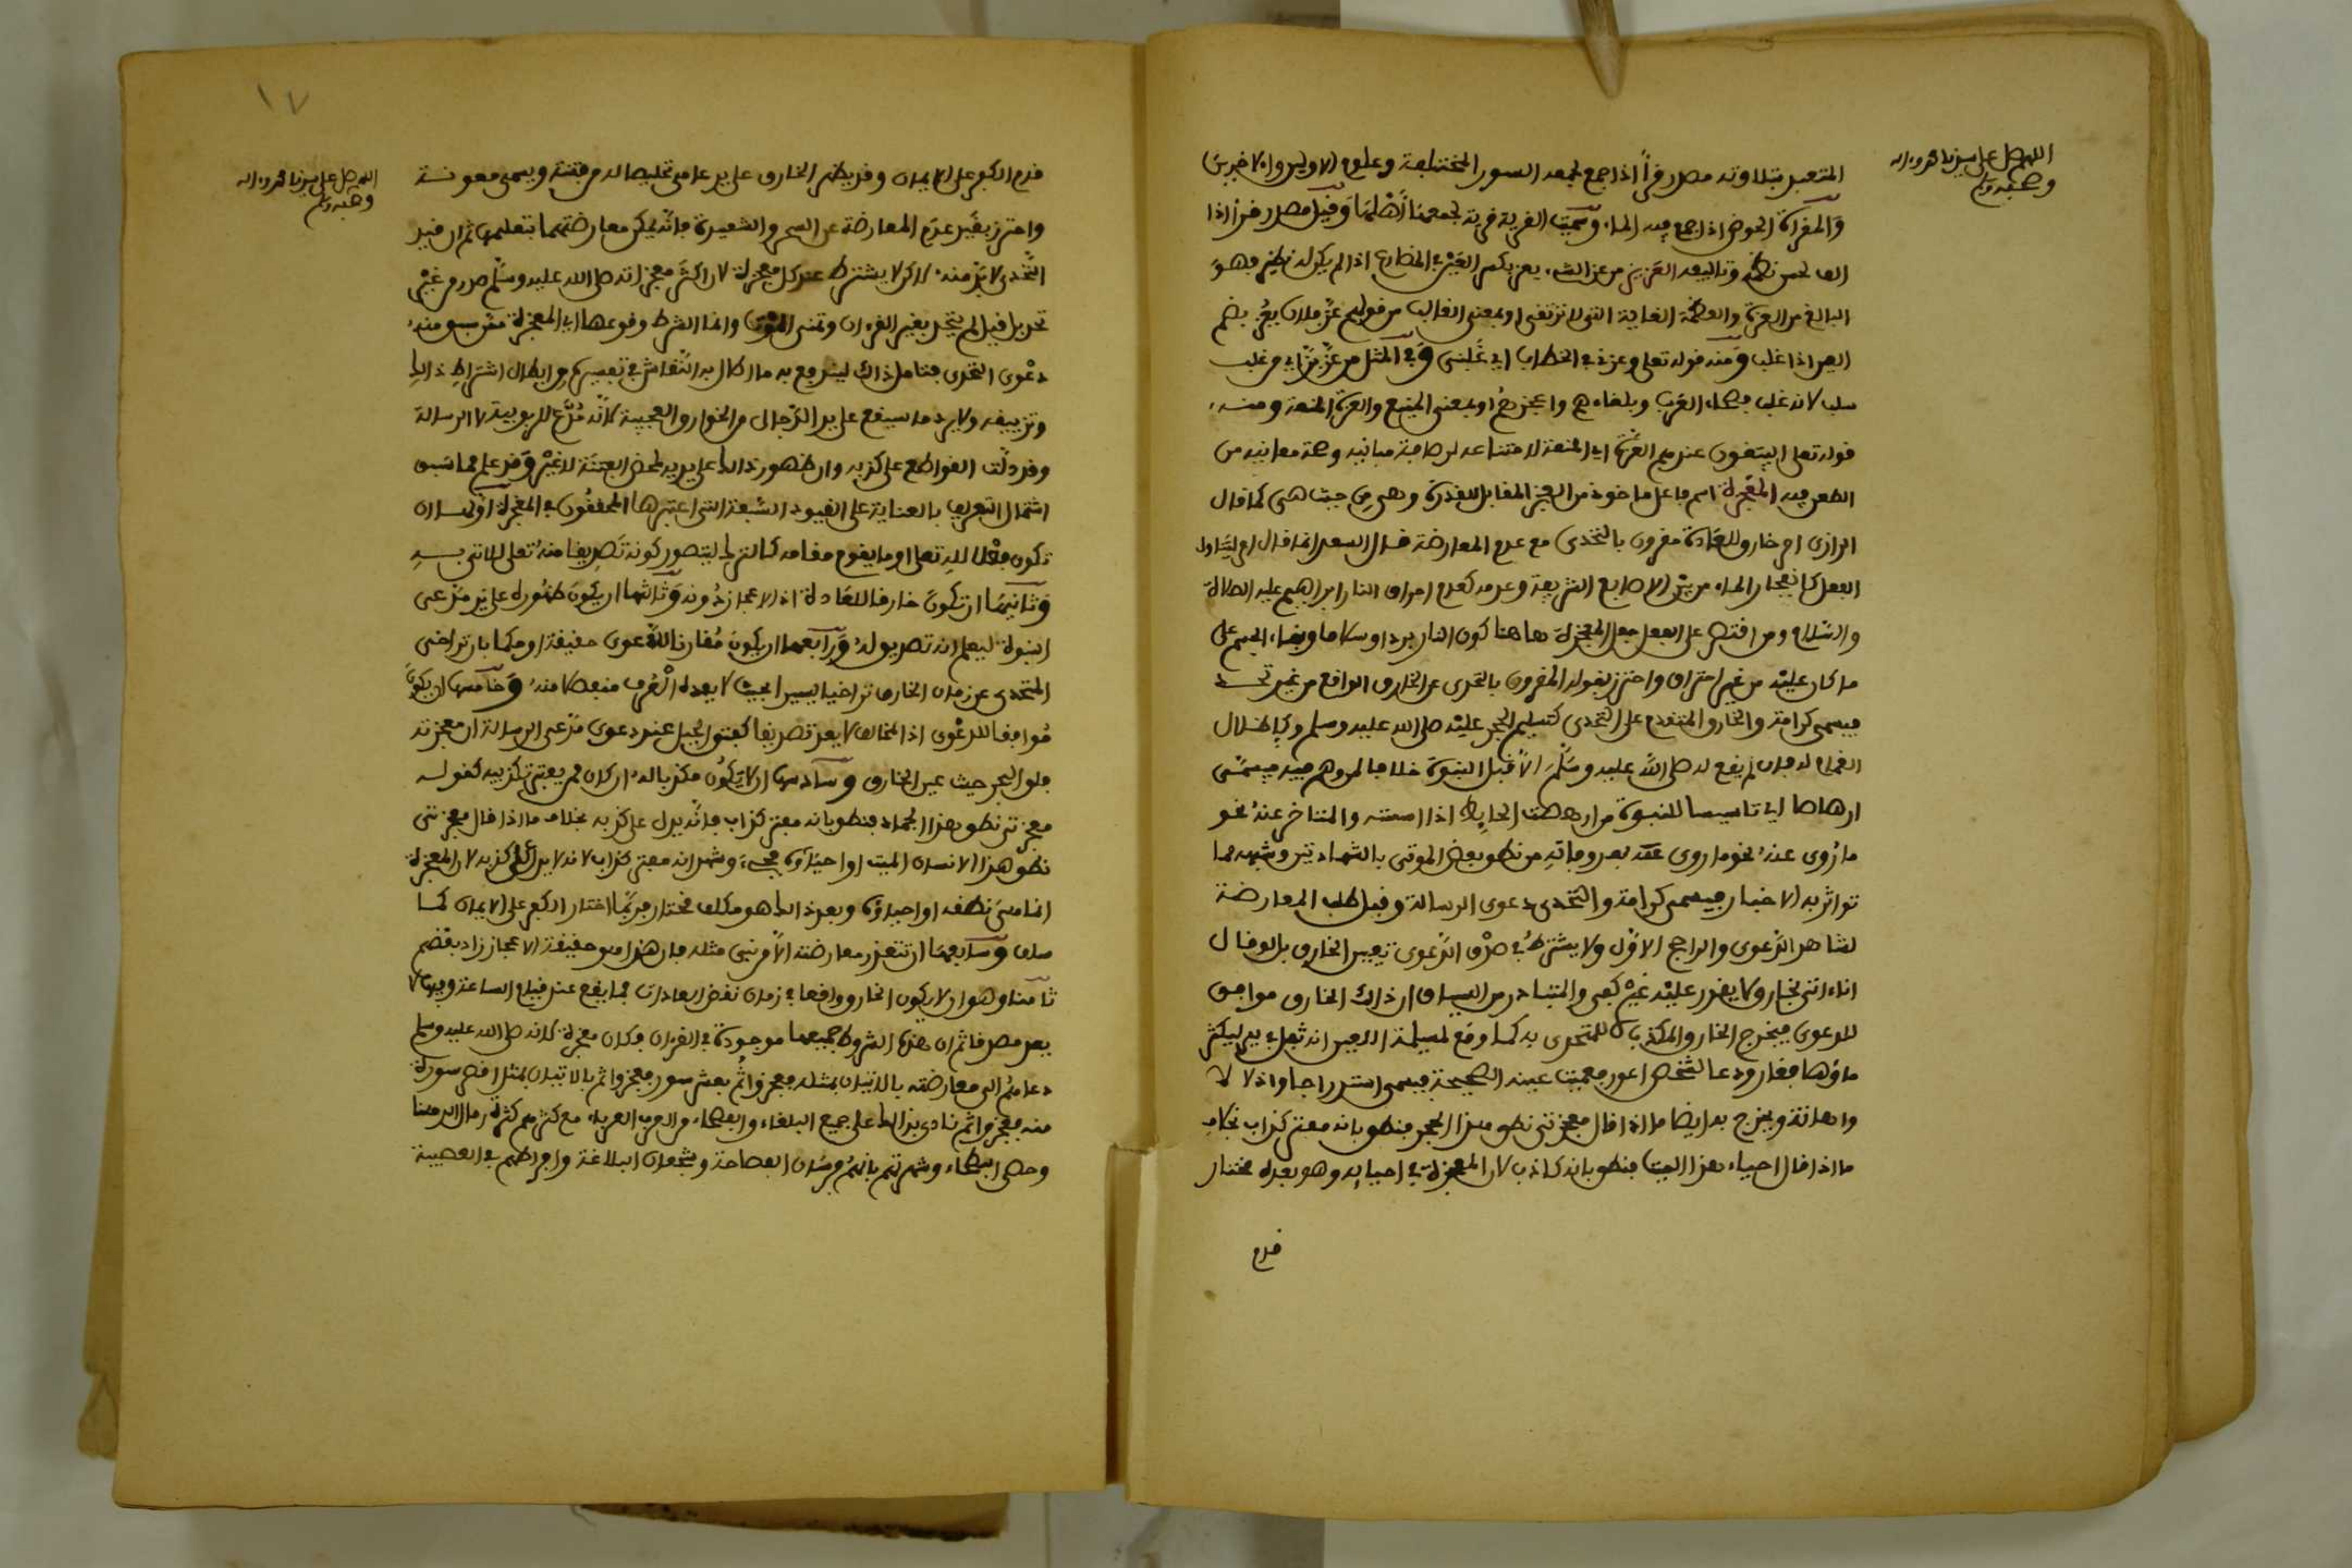 اللهم صل على سيدنا محمد وءاله
وصحبه وسلم
المتعبد بتلاوته مصدر قرأ اذا جمع لجمعه السور المختلفة وعلوم الاولين والاخرين
والمقراة الحوض اذا جمع فيه الماء وسميت القرية قرية لجمعها أهلها وقيل مصدر قرأ اذا
الف لحسن نظمه وتاليفه العزيز من عز الشيء يعز بكسر العين في المضارع اذا لم يكن له نظير فهو
البالغ من العزة والعظمة الغاية التي لا ترتقى او بمعنى الغالب من قولهم عز فلان يعز بضم
العين اذا غلب ومنه قوله تعلى وعزني في الخطاب اي غلبني وفي المثل من عز بز اي من غلب
سلب لانه غلب فصحاء العرب وبلغاءهم واعجزهم او بمعنى المنيع والعزة المنعة ومنه
قوله تعلى ايبتغون عندهم العزة اي المنعة لامتناعه لرصافة مبانيه وصحة معانيه من
الطعن فيه المعجزة اسم فاعل ماخوذ من العجز المقابل للقدرة وهي من حيث هي كما قال
الرازي امر خارق للعادة مقرون بالتحدي مع عدم المعارضة قال السعد انما قال امر ليتناول
الفعل كانفجار الماء من بين الاصابع الشريفة وعدمه كعدم احراق النار ابراهيم عليه الصلاة
والسلام ومن اقتصر على الفعل جعل المعجزة هاهنا كون النار بردا وسلاما وبقاء الجسم على
ما كان عليه من غير احتراق واحترز بقوله المقرون بالتحدي عن الخارق الواقع من غير تحد
فيسمى كرامة والخارق المتقدم على التحدي كتسليم الحجر عليه صلى الله عليه وسلم وكإظلال
الغمام له فان لم يقع له صلى الله عليه وسلم إلا قبل النبوة خلافا لمن وهم فيه فيسمى
ارهاصا اي تاسيسا للنبوة من ارهصت الحايط اذا اسسته والمتاخر عنه نحو
ما روي عنه نحو ما روي عنه بعد وفاته من نطق بعض الموتى بالشهادتين وشبهه مما
تواتر به الاخبار فيسمى كرامة والتحدي دعوى الرسالة وقيل طلب المعارضة
لشاهد الدعوى والراجح الاول ولا يشترط في صدق الدعوى تعيين الخارق بل لو قال
انا ءاتي بخارق لا يقدر عليه غيري كفى والمتبادر من السياق ان ذلك الخارق موافق
للدعوى فيخرج الخارق المكذب للمتحدي به كما وقع لمسيلمة اللعين انه تفل في بير ليكثر
ماؤها فغار ودعا لشخص اعور فعميت عينه الصحيحة فيسمى استدراجا واذلالا
واهانة ويخرج به ايضا ما اذا قال معجزتي نطق هذا الحجر فنطق بانه مفتر كذاب بخلاف
ما اذا قال احياء هذا الميت فنطق بانه كاذب لان المعجزة في احيايه وهو بعده مختار
قدم
١٧
اللهم صل على سيدنا محمد وءاله
وصحبه وسلم
قدم الكفر على الايمان وقد يظهر الخارق على يد عامي تخليصا له من فتنة ويسمى معونة
واحترز بقيد عدم المعارضة عن السحر والشعبذة فانه يمكن معارضتهما بتعلمهما ثم ان قيد
التحدي لا بد منه لاكن لا يشترط عند كل معجزة لان اكثر معجزاته صلى الله عليه وسلم صدر من غير
تحد بل قيل لم يتحد بغير القرءان وتمني الموت وانما الشرط وقوعها اي المعجزة ممن سبق منه
دعوى التحدي فتامل ذلك ليندفع به ما اطال به النقاش في تفسيره من ابطال اشتراط ذلك
وتزييفه ولا يرد ما سيقع على يد الدجال من الخوارق العجيبة لانه مدع للربوبية لا الرسالة
وقد دلت القواطع على كذبه وان ظهور ذلك على يديه لمحض الفتنة لا غير وقد علم مما سبق
اشتمال التعريف بالعناية على القيود السبعة التي اعتبرها المحققون في المعجزة اولها ان
تكون فعلا لله تعلى او ما يقوم مقامه كالترك ليتصور كونه تصديقا منه تعلى للاتي به
وثانيها ان تكون خارقا للعادة اذ لا اعجاز دونه وثالثها ان يكون ظهوره على يد مدعي
النبوة ليعلم انه تصديق له ورابعها ان يكون مقارنا للدعوى حقيقة او حكما بان تراخى
المتحدى عن زمان الخارق تراخيا يسيرا بحيث لا يعده العرف منفصلا منه وخامسها ان يكون
موافقا للدعوى اذ المخالف لا يعد تصديقا كفتق الجبل عند دعوى مدعي الرسالة ان معجزته
فلق البحر حيث عين الخارق وسادسها ان لا يكون مكذبا له ان كان ممن يعتبر تكذيبه كقوله
معجزتي نطق هذا الجماد فنطق بانه مفتر كذاب فانه يدل على كذبه بخلاف ما اذا قال معجزتي
نطق هذا الانسان الميت او احياؤه فحيي وشهد انه مفتر كذاب لانه لا يدل على كذبه لان المعجزة
انما هي نطقه او احياؤه وبعد ذلك هو مكلف مختار فربما اختار الكفر على الايمان كما
سلف وسابعها ان تتعذر معارضته الا من نبي مثله فان هذا هو حقيقة الاعجاز زاد بعضهم
ثامنا وهو ان لا يكون الخارق واقعا في زمان نقض العادات فما يقع عند قيام الساعة وفيها لا
يعد مصدقا ثم ان هذه الشروط جميعها موجودة في القرءان فكان معجزة لانه صلى الله عليه وسلم
دعاهم الى معارضته بالاتيان بمثله فعجزوا ثم بعشر سور فعجزوا ثم بالاتيان بمثل اقصر سورة
منه فعجزوا ثم نادى بذلك على جميع البلغاء والفصحاء من العرب العرباء مع كثرتهم كثرة رمال الدهنا
وحصى البطحاء وشهرتهم بانهم فرسان الفصاحة وشجعان البلاغة وافراطهم في العصبية